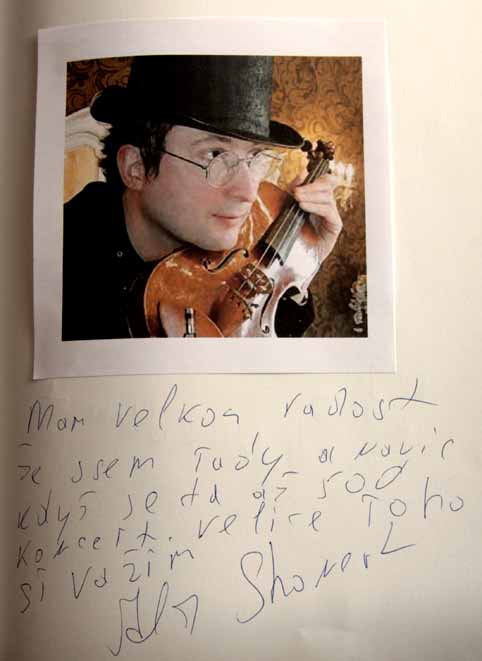 Mam velkou radost
že jsem tady a navic
když je to až 500
koncert. velice toho
si važim